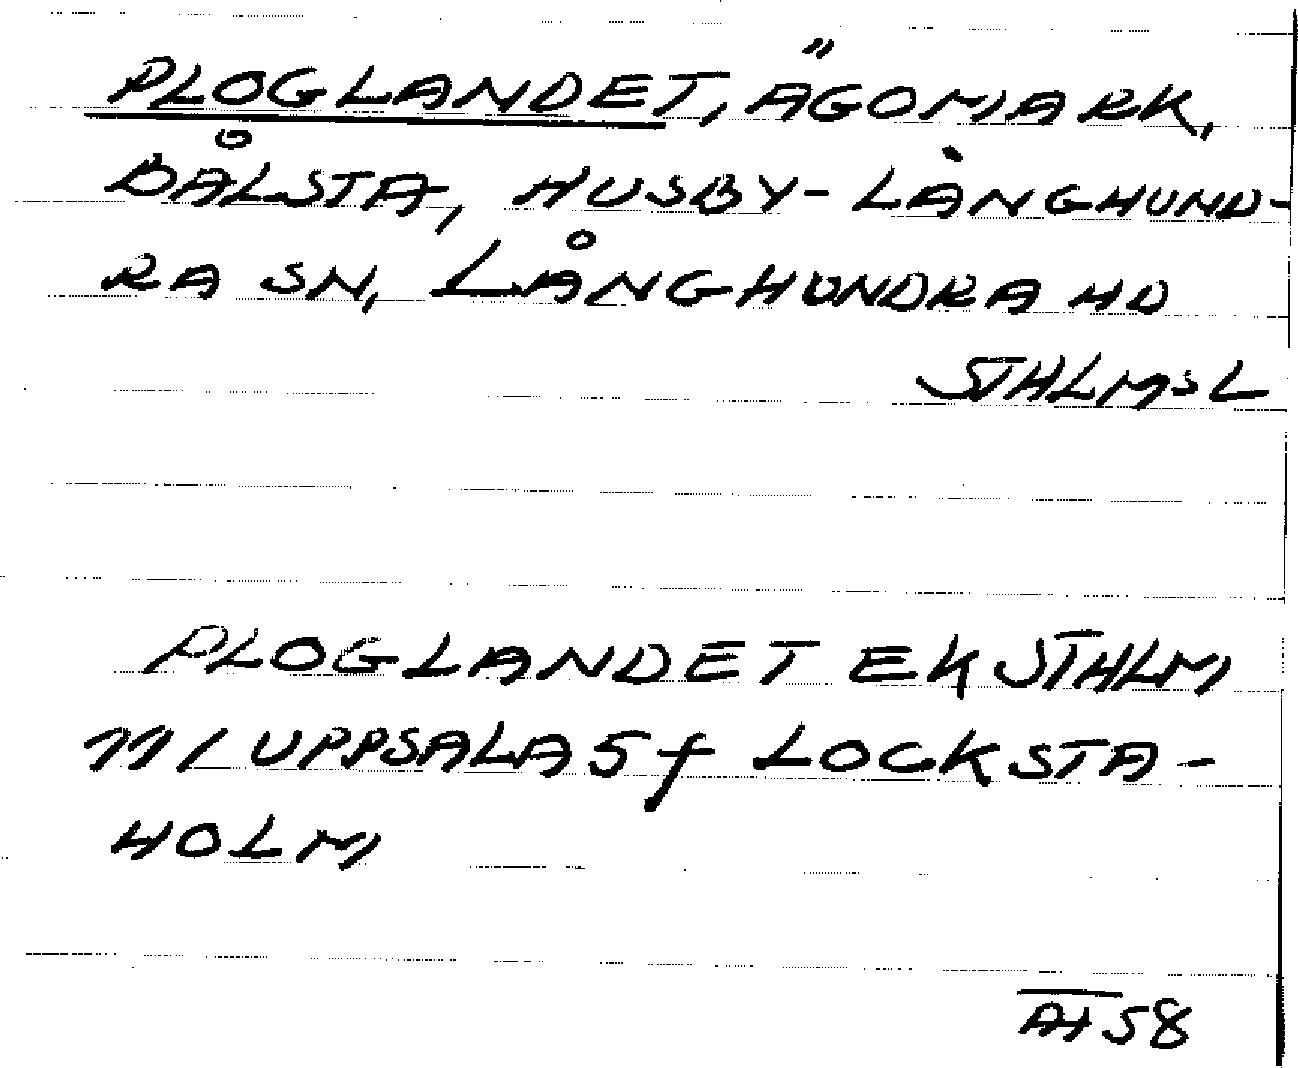 PLOGLANDET, ÄGOMARK,
BÅLSTA, HUSBY-LÅNGHUND-
RA SN, LÅNGHUNDRA HD
STHLMS L
PLOGLANDET EK STHLM
111 UPPSALA 5 f LOCKSTA-
HOLM